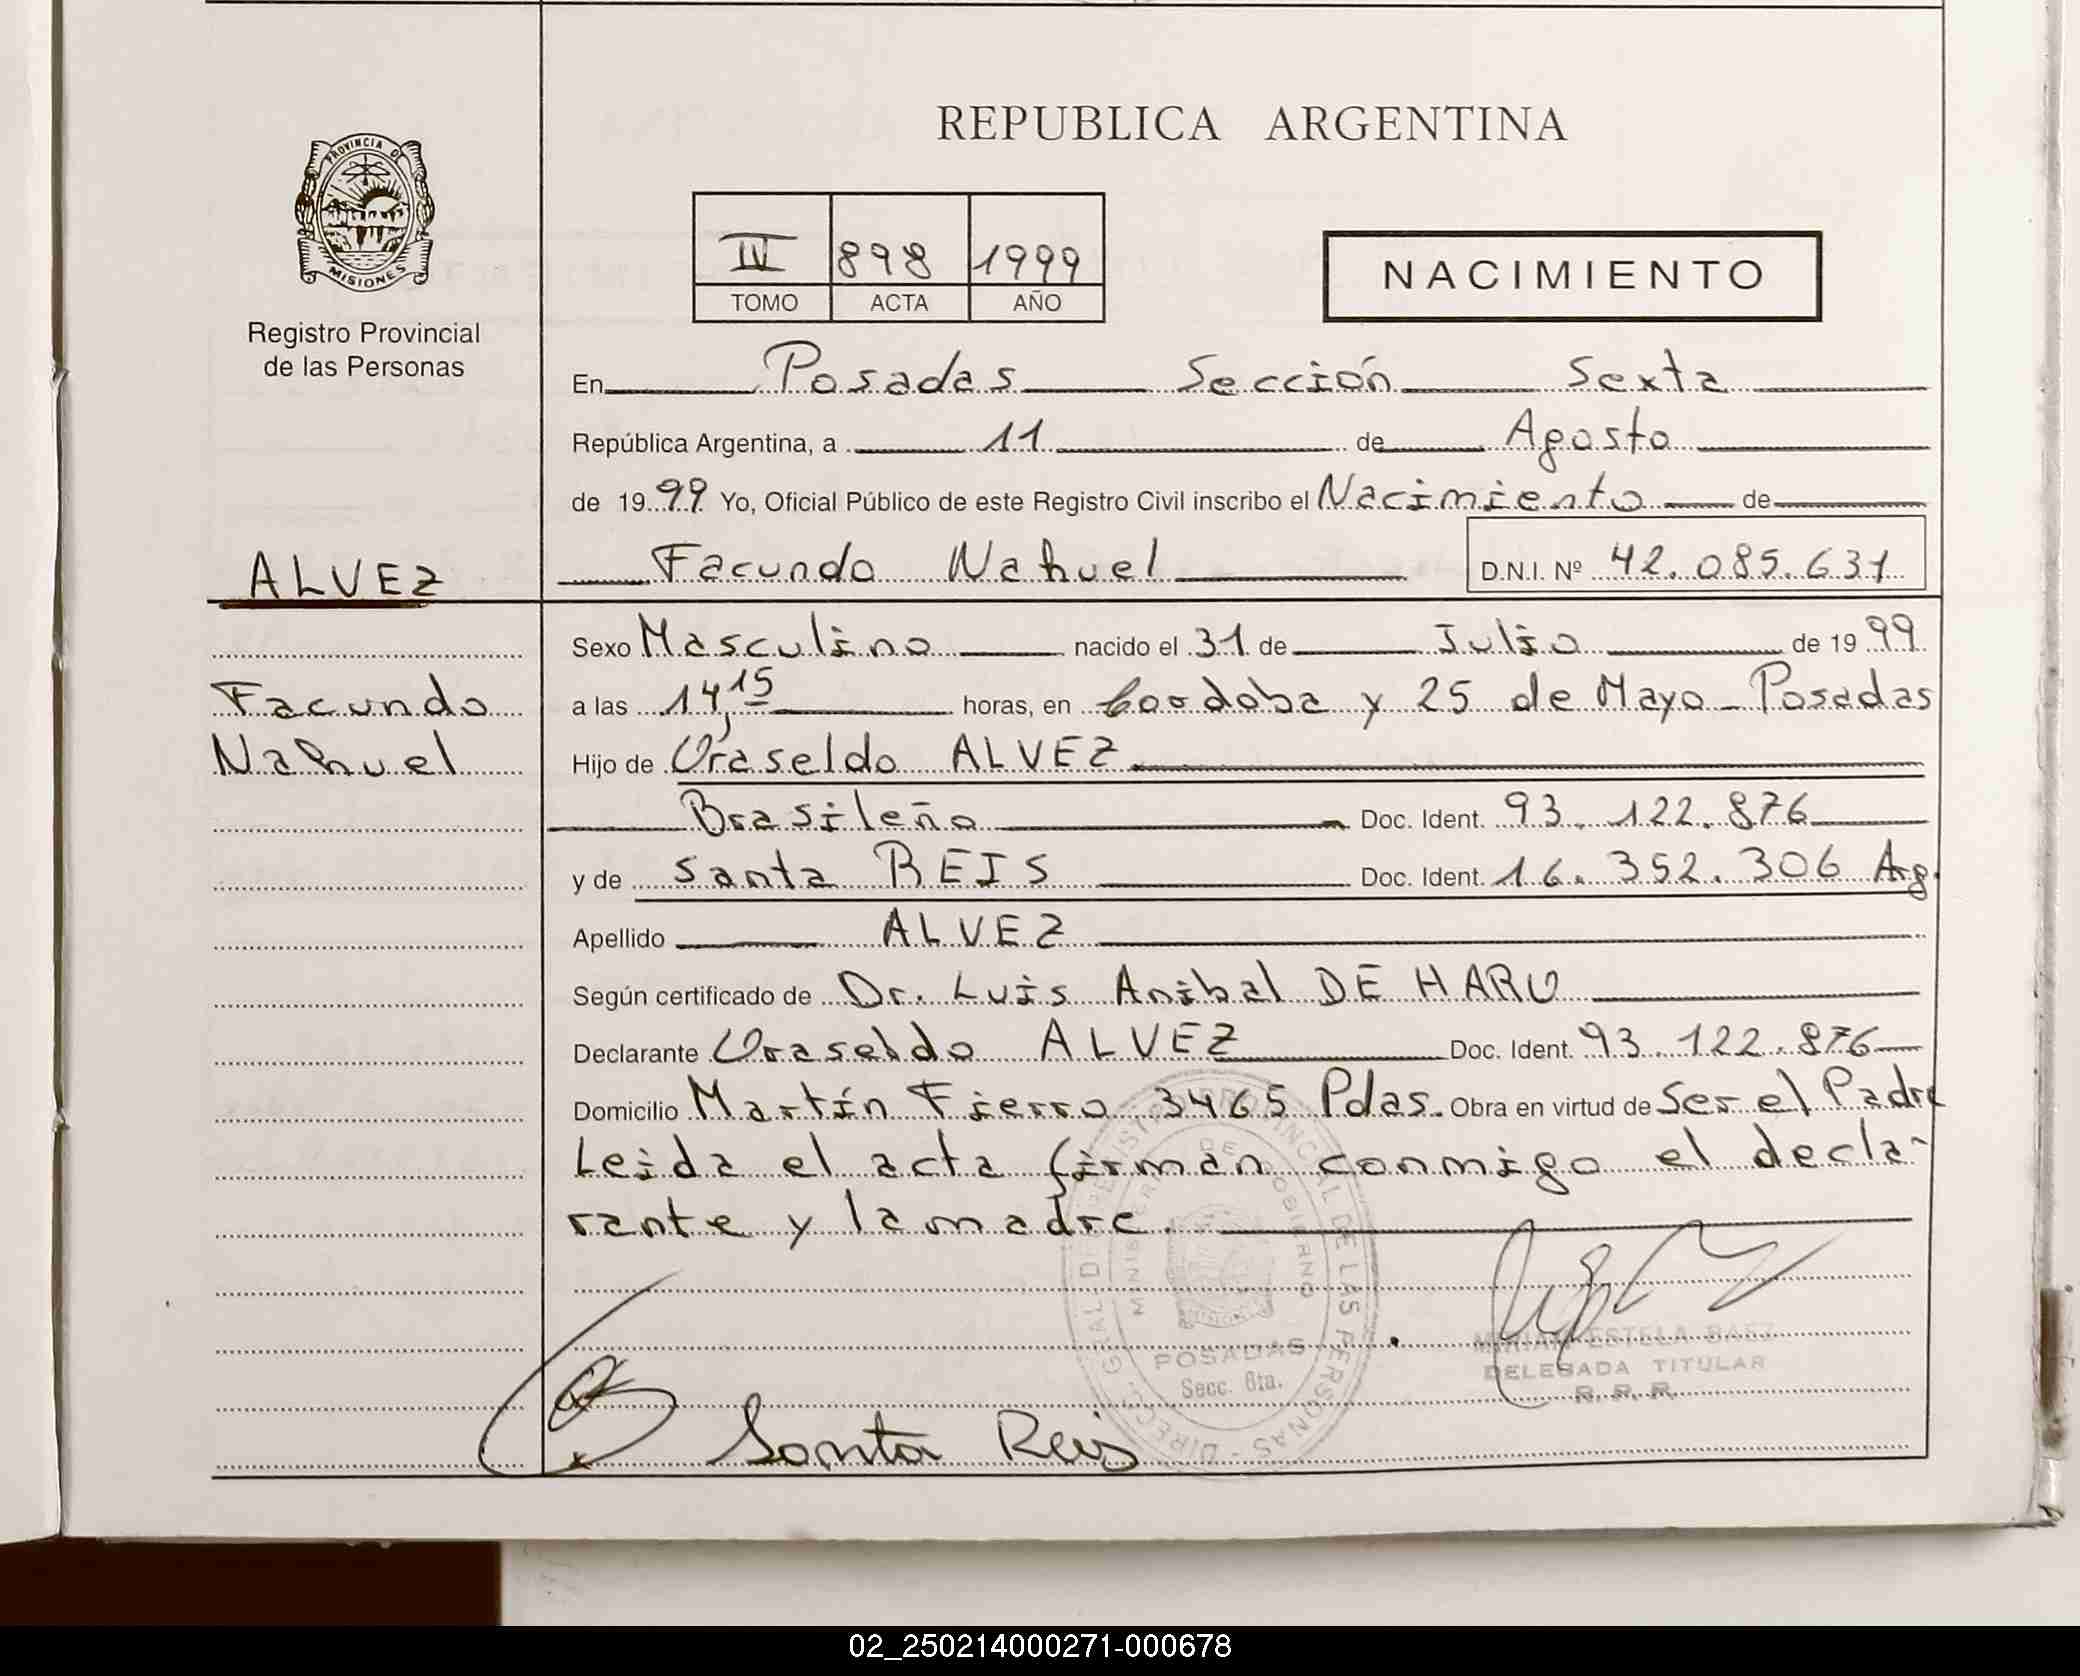 REPUBLICA ARGENTINA
PROVINCIA DE
MISIONES
Registro Provincial
de las Personas
IV 898 1999
TOMO ACTA AÑO
NACIMIENTO
En Posadas Sección Sexta
República Argentina, a 11 de Agosto
de 1999 Yo, Oficial Público de este Registro Civil inscribo el Nacimiento de
ALVEZ
Facundo Nahuel D.N.I. Nº 42.085.631
Facundo
Nahuel
Sexo Masculino nacido el 31 de Julio de 1999
a las 14,15 horas, en Cordoba y 25 de Mayo - Posadas
Hijo de Oraseldo ALVEZ
Brasileño Doc. Ident. 93.122.876
y de Santa REIS Doc. Ident. 16.352.306 Arg.
Apellido ALVEZ
Según certificado de Dr. Luis Anibal DE HARO
Declarante Oraseldo ALVEZ Doc. Ident. 93.122.876
Domicilio Martín Fierro 3465 Pdas. Obra en virtud de Ser el Padre
Leida el acta firman conmigo el decla-
rante y la madre.
DIRECC. GRAL. DEL REGISTRO PROVINCIAL DE LAS PERSONAS
MINISTERIO DE GOBIERNO
POSADAS
Secc. 6ta.
MIRIAM ESTELA BAEZ
DELEGADA TITULAR
R. P. P.
Santa Reis
02_250214000271-000678